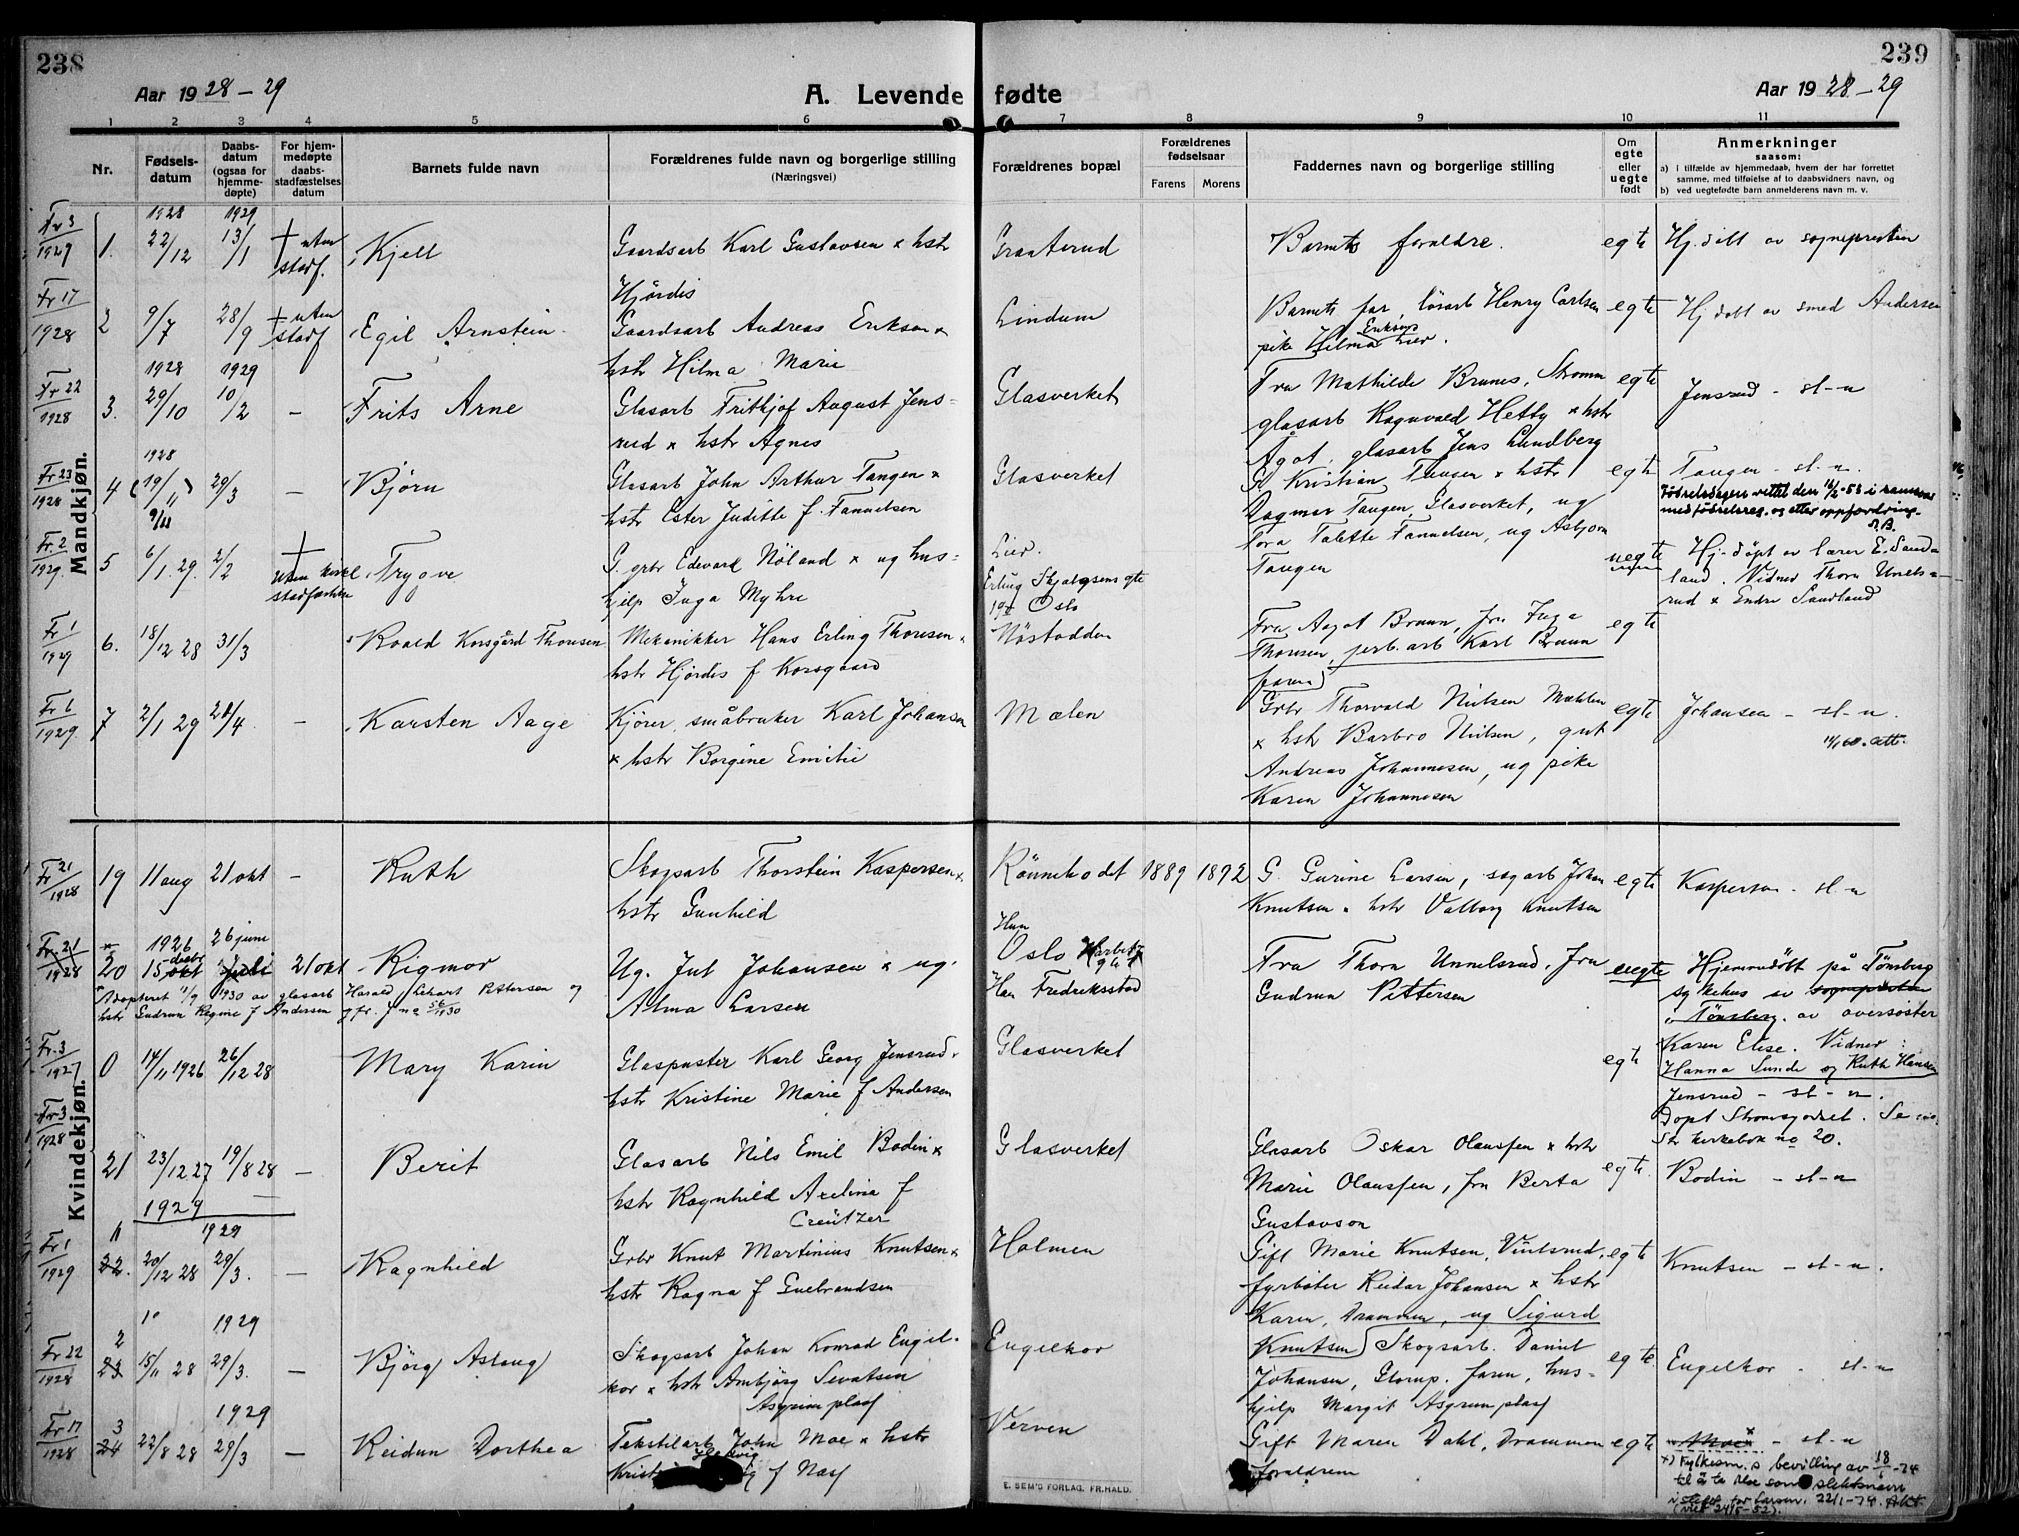 238
239
Aar 1928-29
A. Levende fødte
Aar 1928-29
1 2 3 4 5 6 7 8 9 10 11
Nr.
Fødsels-
datum
Daabs-
datum
(ogsaa for
hjemme-
døpte)
For hjem-
medøpte
daabs-
stadfæstelses
datum
Barnets fulde navn
Forældrenes fulde navn og borgerlige stilling
(Næringsvei)
Forældrenes bopæl
Forældrenes
fødselsaar
Farens
Morens
Faddernes navn og borgerlige stilling
Om
egte
eller
uegte
født
Anmerkninger
saasom:
a) i tilfælde av hjemmedaab, hvem der har forrettet
samme, med tilføielse af to daabsvidners navn, og
b) ved uegtefødte barn anmelderens navn m. v.
Mandkjøn.
Fr 3
1929
1.
1928
22/12
1929
13/1
+ uten
stadf.
Kjell
Gaardsarb Karl Gustavsen x hstr
Hjørdis
Graaterud
Barnets foraldre.
egte
Hj. døbt av sogneprestin
Fr 17
1928
2
9/7
28/9
+ uten
stadf
Egil Arnstein
Gaardsarb Andreas Eriksen x
hstr Hilma Marie
Lindum
Barnets far, løsarb Henry Carlsen
pike Hilma Eriksen Lier.
egte
Hj døbt av smed Andersen
Fr 22
1928
3.
1928
29/10
1929
10/2
-
Frits Arne
Glasarb Fritkjof August Jens-
rud x hstr Agnes
Glasverket
Fra Mathilde Brunes, Strømm
glasarb Ragnvald Hetty x hstr
Ågot, glasarb Jens Lundberg
egte
Jensrud - st-n
Fr 23
1928
4
1928
(19/11)
9/11
29/3
-
Bjørn
Glasarb John Arthur Tangen x
hstr Ester Juditte f. Fannelsen
Glasverket
G Kristian Tangen x hstr
Dagmar Tangen, Glasverket, ug
Tora Talette Fannelsen, ug Asbjørn
Tangen
egte
Tangen - st-n.
Fødselsdagen rettet den 16/2-53 i samsvar
med fødselsreg. og etter oppfordring.
Fr. 2
1929.
5
6/1 29.
2/2
+
uten kirkel
stadfæstelse
Trygve
G. grbr Edevard Nöland x ug hus-
hjelp Inga Myhre
Lier.
Erling Skjalgsens gte
19 Oslo
uegte
Hj. døpt av lærer E. Sand-
land. Vidner Thora Unnels-
rud x Endre Sandland
Fr 1
1929
6.
18/12 28
31/3
Roald Korsgård Thoresen
Mekanikker Hans Erling Thoresen x
hstr Hjørdis f Korsgaard
Nöstodden
Fru Aagot Braun, fr. Inga
Thoresen, perb. arb Karl Braun
faren)
egte
Fr 6
1929
7
2/1 29
21/4
-
Karsten Aage
Kjører, småbruker Karl Johansen
x hstr Borgine Emilie
Mælen
Grbr Thorvald Nielsen Mæhlen
x hstr Barbro Nielsen, gut
Andreas Johannesen, ug pike
Karen Johannesen
egte
Johansen - st-n.
14/1 60. att.
Kvindekjøn.
Fr 21
1928
19
11 aug
21 okt
-
Ruth
Skogsarb Thorstein Kaspersen x
hstr Gunhild
Rönneholdt
1889
1892
G. Gurine Larsen, sagarb Johan
Knutsen x hstr Valborg Knutsen
egte
Kaspersen - st-n
Fr 21
1928
20
1926
15 okt
decbr
26 juni
Juli
21 okt
Rigmor
Ug. Jul Johansen x ug.
Alma Larsen
Hun
Oslo
Han Fredriksstad
Fra Thora Unnelsrud, fra
Gudrun Pettersen
uegte
Hjemmedöbt på Tønsberg
sykehus av sogneprsten
i Tønsberg. av oversøster
Karen Elise. Vidner:
Hanna Sunde og Ruth Hansen
Adopteret 11/9 1930 av glasarb Harald Pettersen og
hstr Gudrun Regine f Andersen
Fr. 3
1927
0
14/11 1926
26/12 28
Mary Karin
Glaspuster Karl Georg Jensrud x
hstr Kristine Marie f Andersen
Glasverket
egte
Jensrud - st-n.
Døpt Strømsgodset. Se min.
kirkebok no 20.
Fr 3
1928
21
23/12 27
19/8 28
-
Berit
Glasarb Nils Emil Bodin x
hstr Ragnhild Axelina f
Creutzer
Glasverket
Glasarb Oskar Olaussen x hstr
Marie Olaussen, fru Berta
Gustavson
egte.
Bodin - st-n
1929
Fr 1
1929
1
22.
20/12 28
1929
29/3.
-
Ragnhild
Grbr Knut Martinius Knutsen x
hstr Ragna f Guebrandsen
Holmen
Gift Marie Knutsen, Vintsrud,
fyrbøter Reidar Johansen x hstr
Karen, Drammen, ug Sigurd
Knutsen)
egte
Knutsen - st-n.
Fr 22
1928
2
23
15/11 28
1929
29/3.
-
Björg Aslaug
Skogsarb Johan Konrad Engel-
kor x hstr Ambjørg Sevatsen
Asgrimplass
Engelkor
Skogsarb. Daniel
Johansen, Glomp. faren, hus-
hjelp Margit Asgrimplass
egte.
Engelkor - st-n
Fr 17
1928
3
24
22/8 28
1929
29/3
-
Reidun Dorthea
Tekstilarb John Moe x hstr
Hedvig f Næss
Verven
Gift Maren Dahl, Drammen
foraldrene
egte
Moe x - st-n
x) Fylkesm.s bevilling av 18/1-74
til å ta Moe som slektsnavn
i stedet for Larsen. 22/1-74.
E. SEM'S FORLAG, FR.HALD.